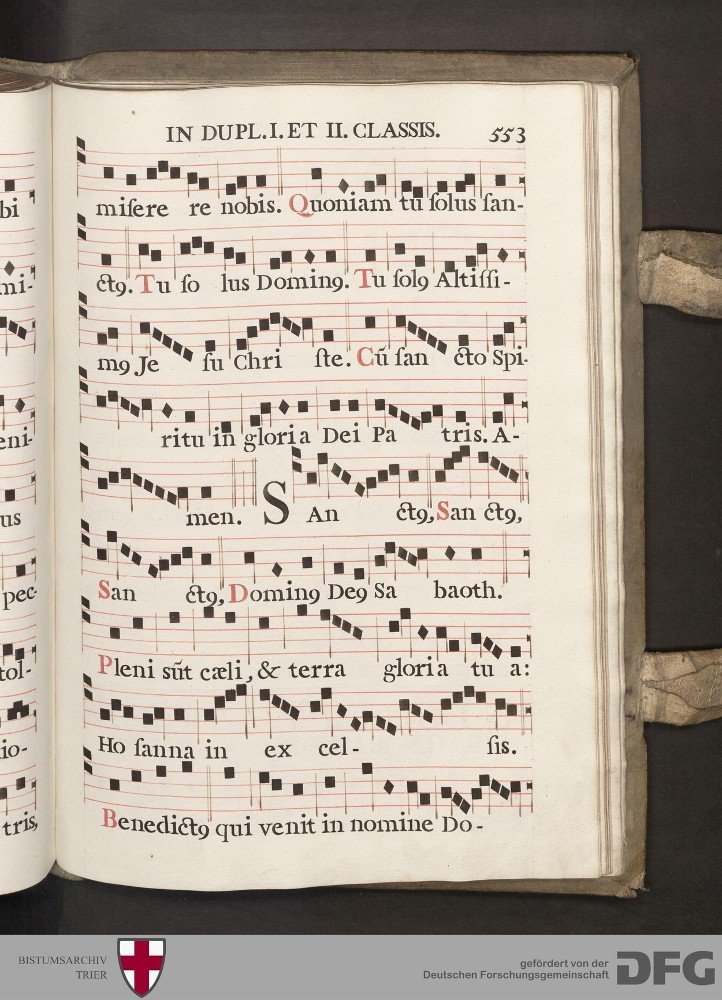 IN DUPL. I. ET II. CLASSIS. 553
miſere re nobis. Quoniam tu ſolus ſan-
ctꝰ. Tu ſo lus Dominꝰ. Tu ſolꝰ Altiſſi-
mꝰ Je ſu Chri ſte. Cū ſan cto Spi-
ritu in gloria Dei Pa tris. A-
men. SAn ctꝰ, San ctꝰ,
San ctꝰ, Dominꝰ Deꝰ Sa baoth.
Pleni sūt cæli, & terra gloria tu a:
Ho ſanna in ex cel- ſis.
Benedictꝰ qui venit in nomine Do-
bi
mi-
eni-
us
pec-
tol-
io-
tris,
BISTUMSARCHIV
TRIER
gefördert von der
Deutschen Forschungsgemeinschaft
DFG